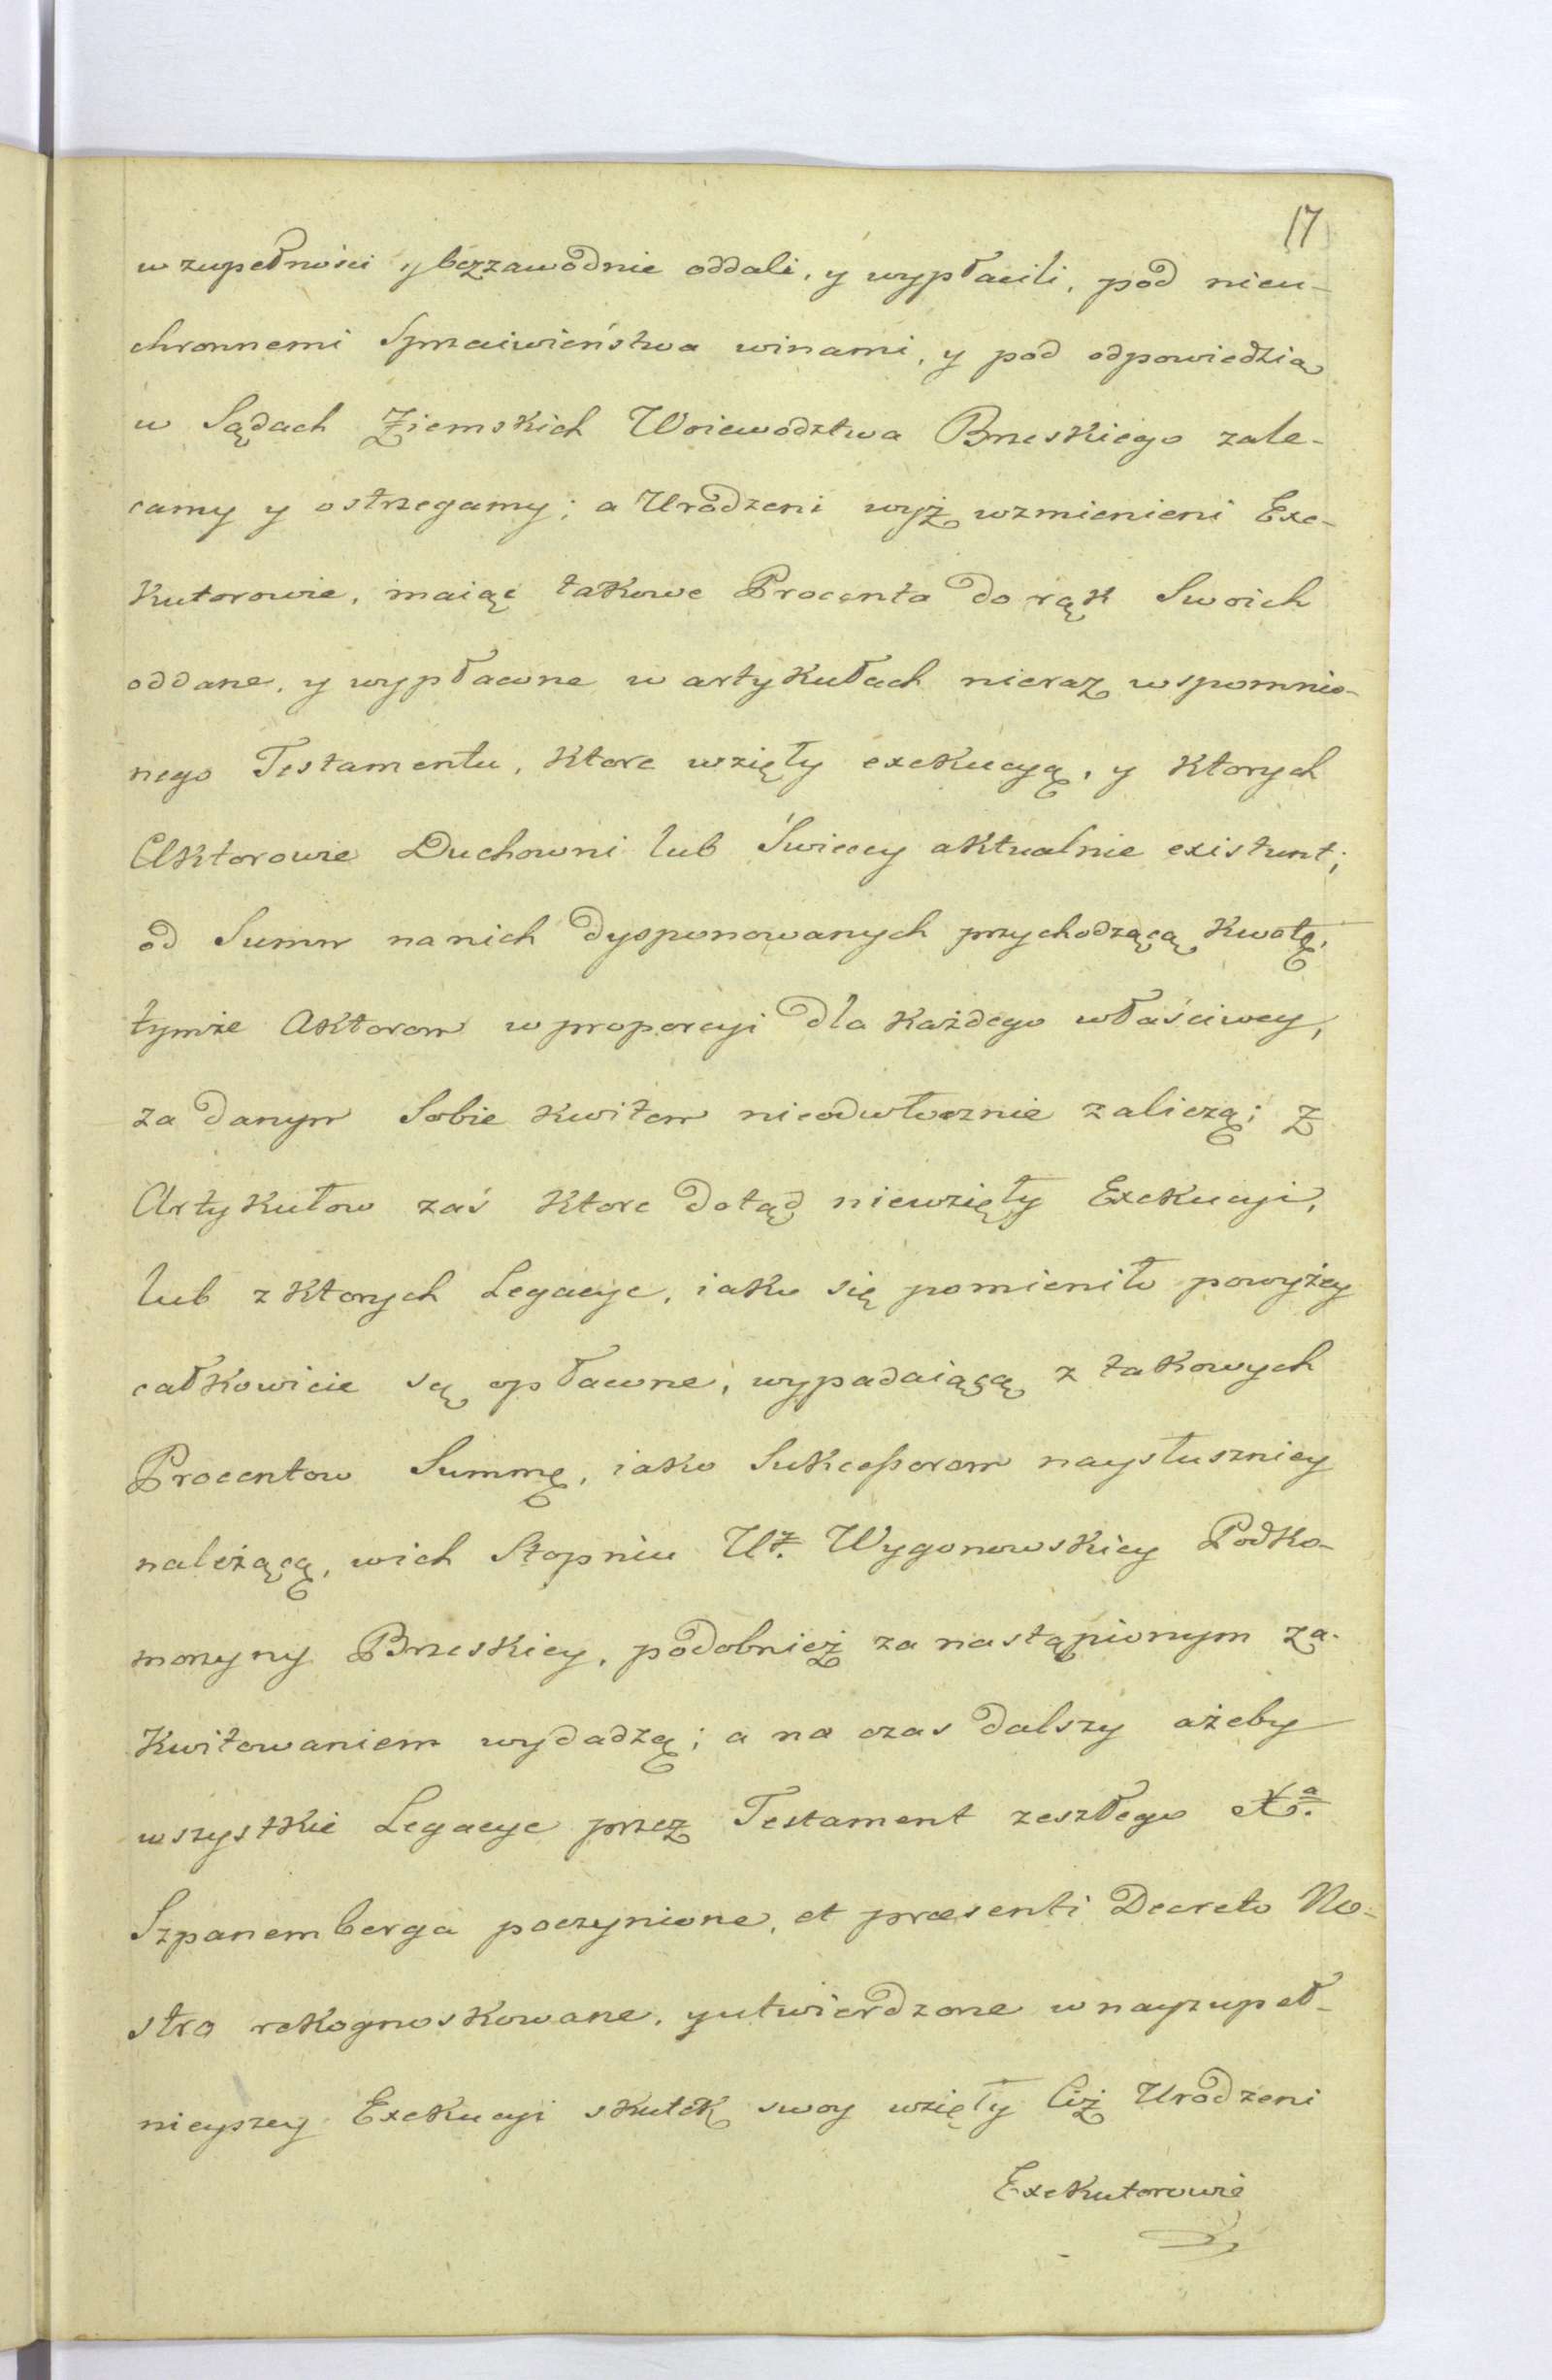 17
w zupełności y bezzawodnie oddali, y wypłacili, pod nieu-
chronnemi Sprzeciwieństwa winami, y pod odpowiedzią
w Sądach Ziemskich Woiewodztwa Brzeskiego zale-
camy y ostrzegamy; a Urodzeni wyż wzmienieni Exe-
kutorowie, maiąc takowe Procenta do rąk Swoich
oddane, y wypłacone w artykułach nieraz wspomnio-
nego Testamentu, ktore wzięły exekucyą, y ktorych
Aktorowie Duchowni lub Świeccy aktualnie existunt;
od Summ na nich dysponowanych przychodzącą kwotę,
tymże Aktorom w proporcyi dla każdego właściwey,
za danym Sobie kwitem nieodwłocznie zaliczą; z
Artykułow zaś ktore dotąd niewzięły Exekucyi,
lub z ktorych Legacye, iako się pomieniło powyżey
całkowicie są opłacone, wypadaiącą z takowych
Procentow Summę, iako Sukcessorom naysłuszniey
należącą, w ich Stopniu Uż. Wygonowskiey Podko-
morzyny Brzeskiey, podobnież za nastąpionym za-
kwitowaniem wydadzą; a na czas dalszy ażeby
wszystkie Legacye przez Testament zeszłego Xa.
Szpanemberga poczynione, et præsenti Decreto No-
stro rekognoskowane, y utwierdzone w nayzupeł-
nieyszey Exekucyi skutek swoy wzięły Ciż Urodzeni
Exekutorowie